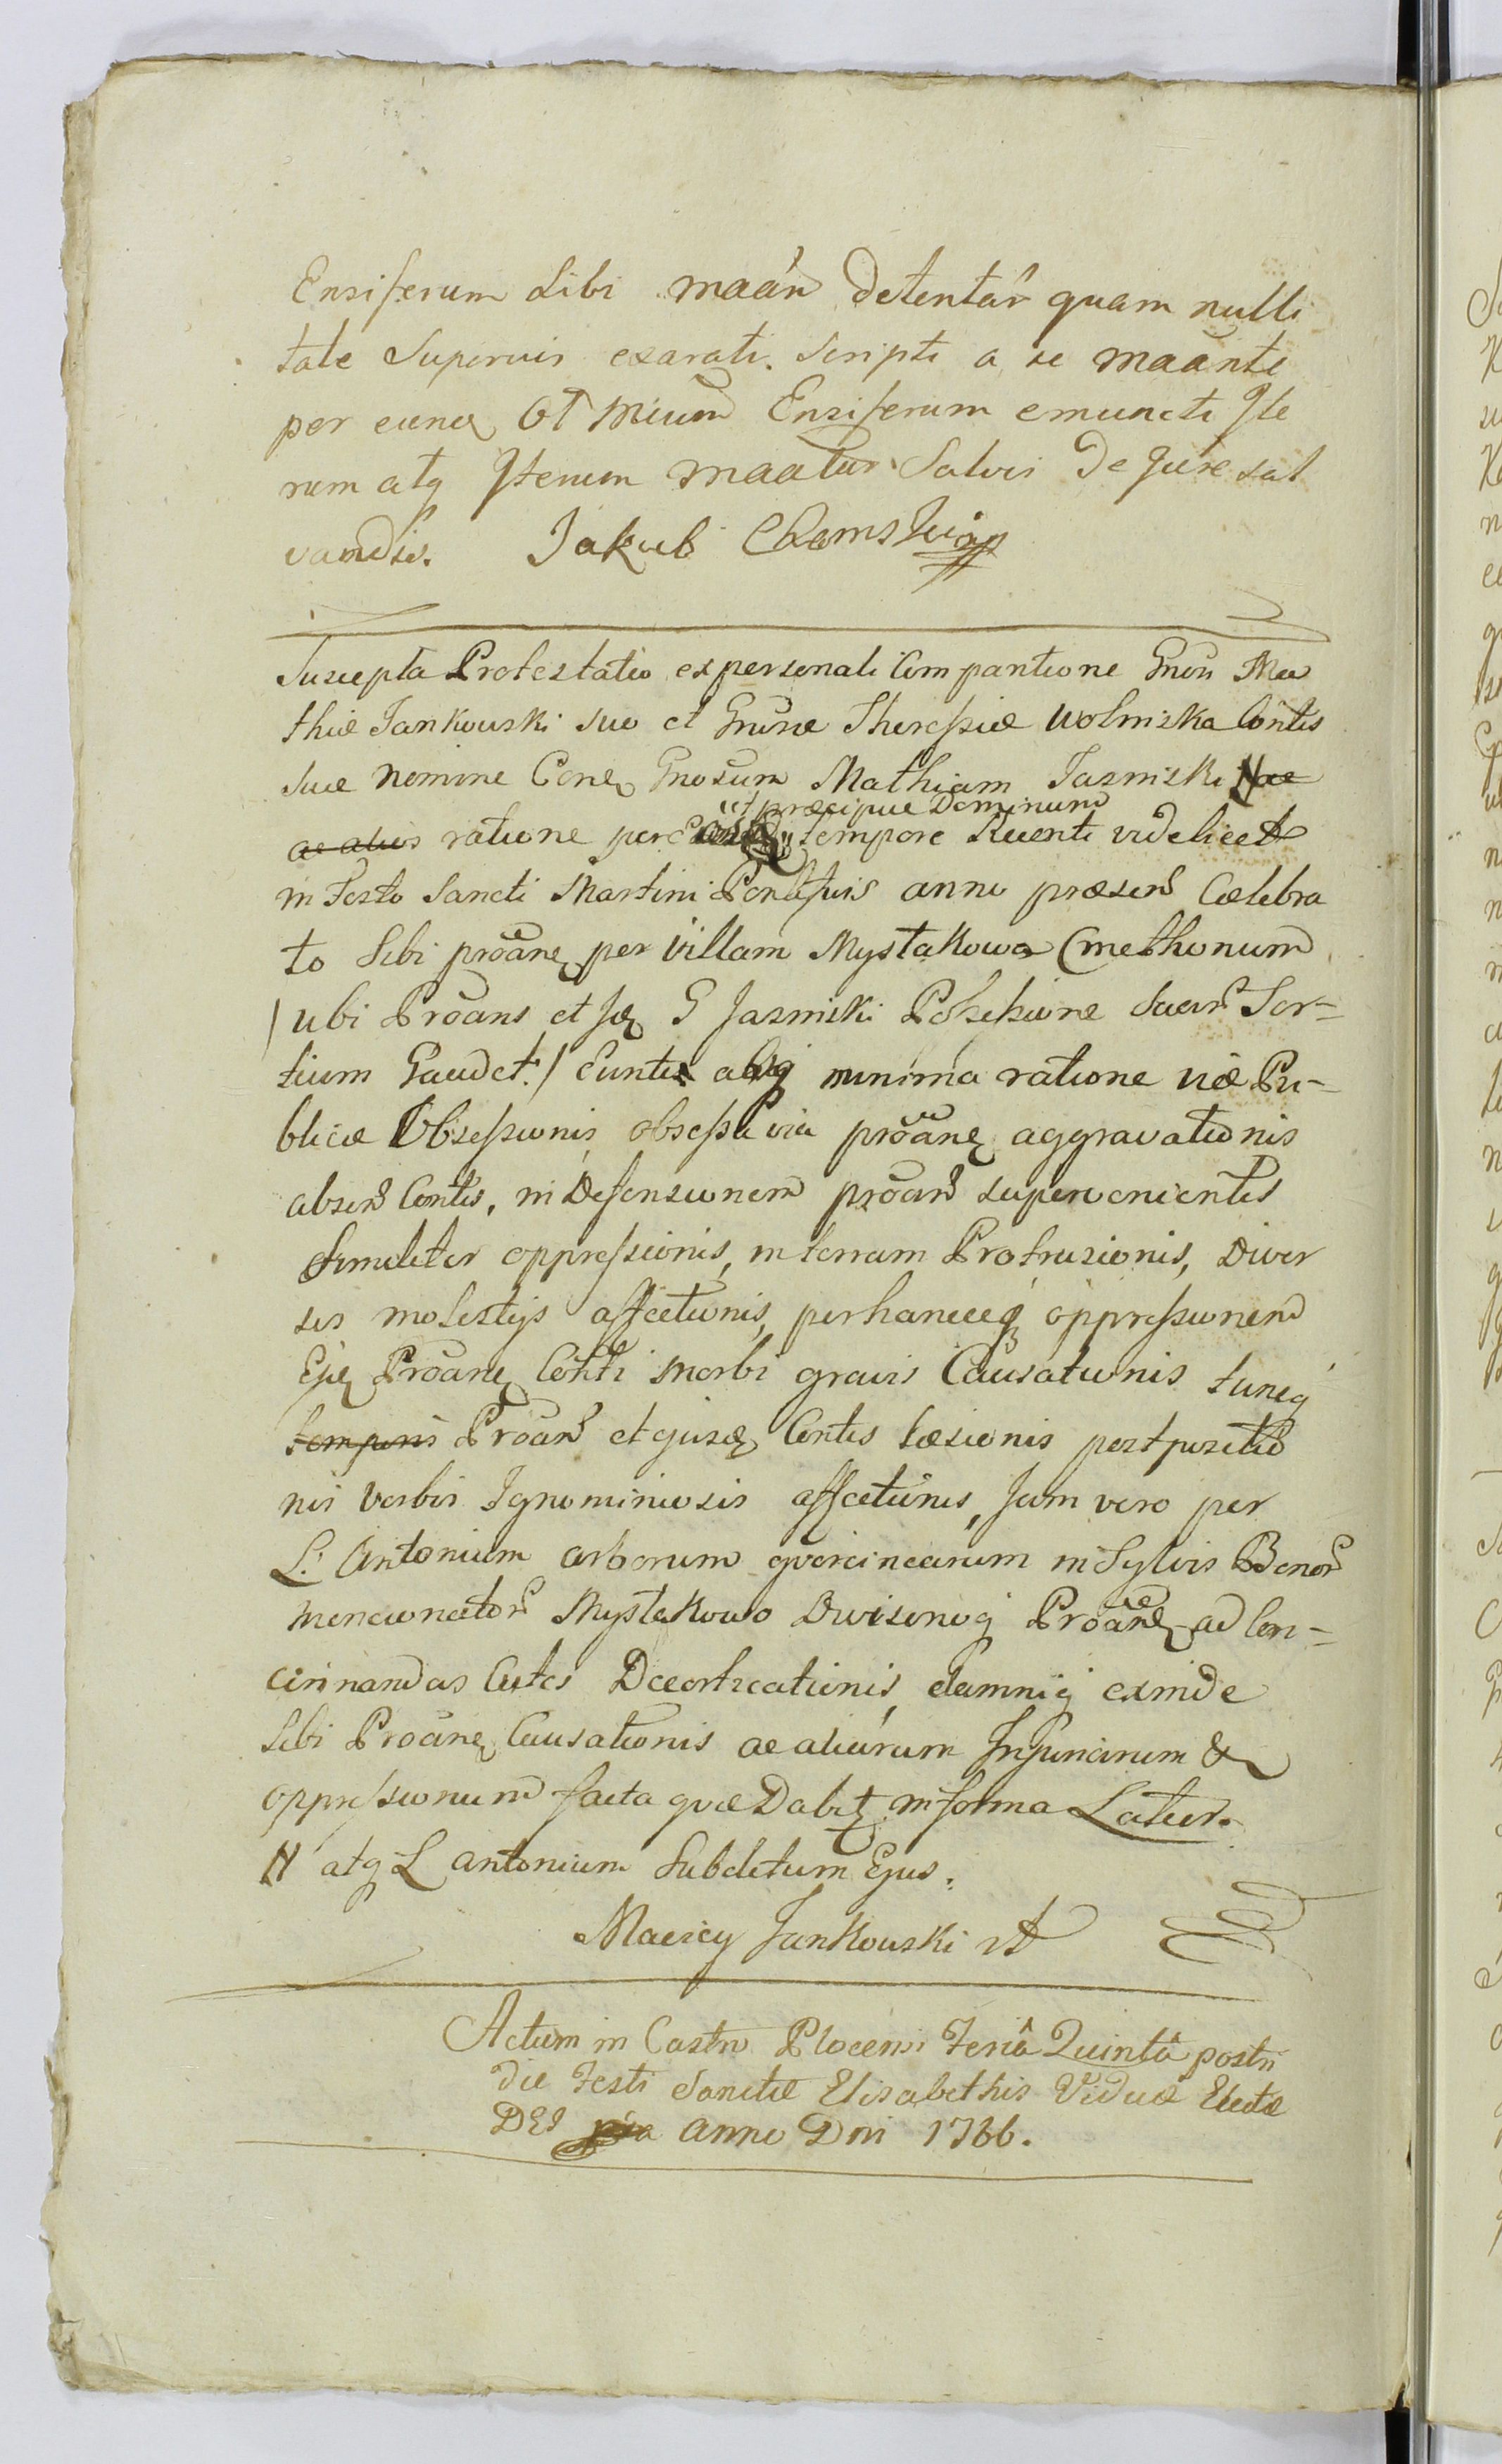 Ensiferum Sibi maan̄ detentâr quam nulli
tate Superius exarati. Scripti a se maānte
per eunq̨ GT Mium Ensiferum emuncti Ite
rum atq Iterum maatur Salvis De Jure sal
vandis. Jakub Chamski
Suscepta Protestatio ex personali Comparitione Gnōsi Ma
thiæ Jankowski suo et Gnūsæ Theressiæ Wolmska Cōntis
suæ Nomine Conq̨ Gnosum Mathiam Jasmiski N ae
ac alios ratione per "et præcipue Dominum" tempore Recenti videlicet
in Festo Sancti Martini Pontificis anni præsen̄ Celebra
to Sibi prōānq̨ per Villam Mystkowo Cmethonum
/ ubi Prōans et Iq̨ G Jasmiski Possessione Suar̄ Sor=
tium Gaudet. / Eunti absq minima ratione viæ Pu=
blicæ Obsessionis, obsessa via prōānq̨ aggravationis
absen̄ Cōntis, in Defensionem prōan̄ supervenientis
Similiter oppressionis, in terram Protrusionis, Diver
sis molestijs affectionis, per hancceq̨ oppressionem
Ejq̨ Prōanq̨ Cōnti Morbi gravis Causationis tuncq̨
temporis Prōan̄ et ejusq̨ Cōntis læsionis postpositio
nis Verbis Ignominiosis affectionis, Jam vero per
L. Antonium arborum qvercinearum in Sylvis Bonor̄
Mencionator̄ Mystkowo Divisoniq̨ Prōānq̨ ad Con=
cinnandas Cutes Decorticationis, damniq̨ exinde
Sibi Prōānq̨ Causationis ac aliarum Injuriarum &
oppressionum facta qvæ Dabit̨ in forma Latior.
N atq L Antonium Subditum Ejus.
Maciey Jankowski
Actum in Castro Plocensi Feriâ Quintâ postri
die Festi Sanctæ Elisabethis Viduæ Electæ
DEI Anno Dni 1766.